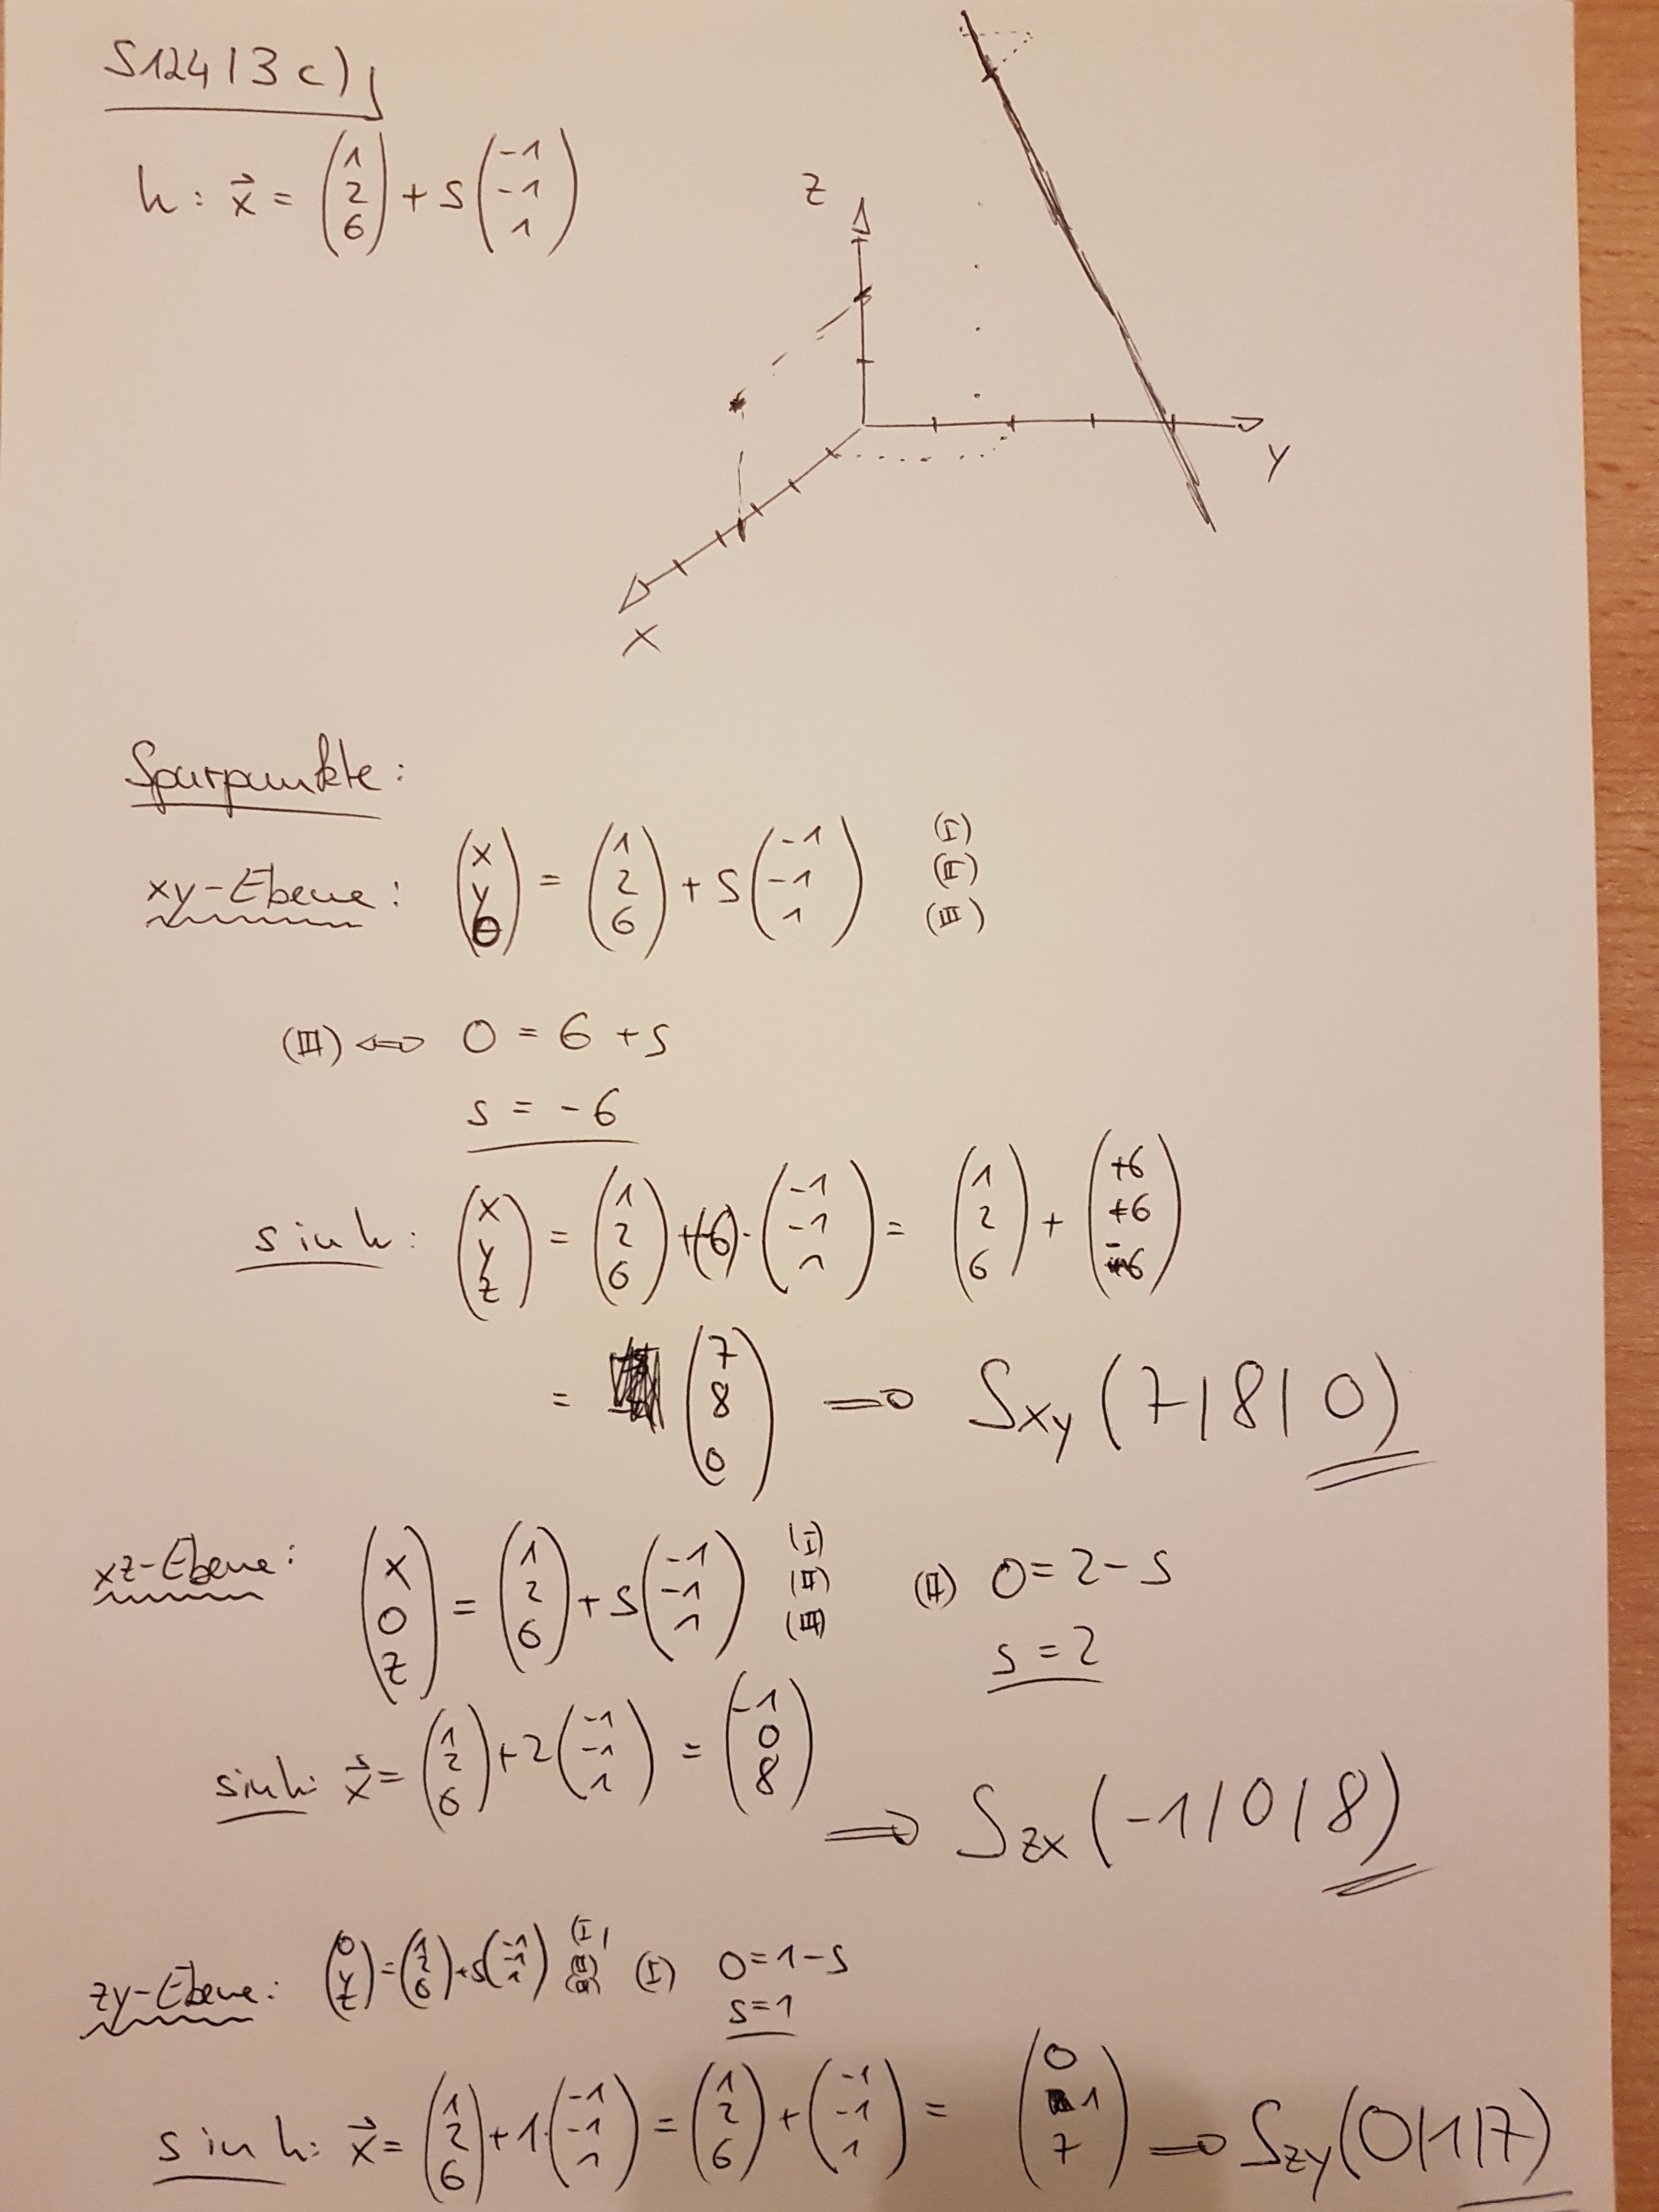 S124/3 c)
h: x⃗ = (1 2 6) + s (-1 -1 1)
z
y
x
Spurpunkte:
xy-Ebene: (x y 0) = (1 2 6) + s (-1 -1 1) (I) (II) (III)
(III) ⇔ 0 = 6 + s
s = -6
s in h: (x y z) = (1 2 6) + (-6) · (-1 -1 1) = (1 2 6) + (+6 +6 -6)
= (7 8 0) ⇒ Sxy (7|8|0)
xz-Ebene: (x 0 z) = (1 2 6) + s (-1 -1 1) (I) (II) (III) (II) 0 = 2 - s
s = 2
s in h: x⃗ = (1 2 6) + 2 (-1 -1 1) = (-1 0 8)
⇒ Szx (-1|0|8)
zy-Ebene: (0 y z) = (1 2 6) + s (-1 -1 1) (I) (II) (III) (I) 0 = 1 - s
s = 1
s in h: x⃗ = (1 2 6) + 1 · (-1 -1 1) = (1 2 6) + (-1 -1 1) = (0 1 7) ⇒ Szy (0|1|7)